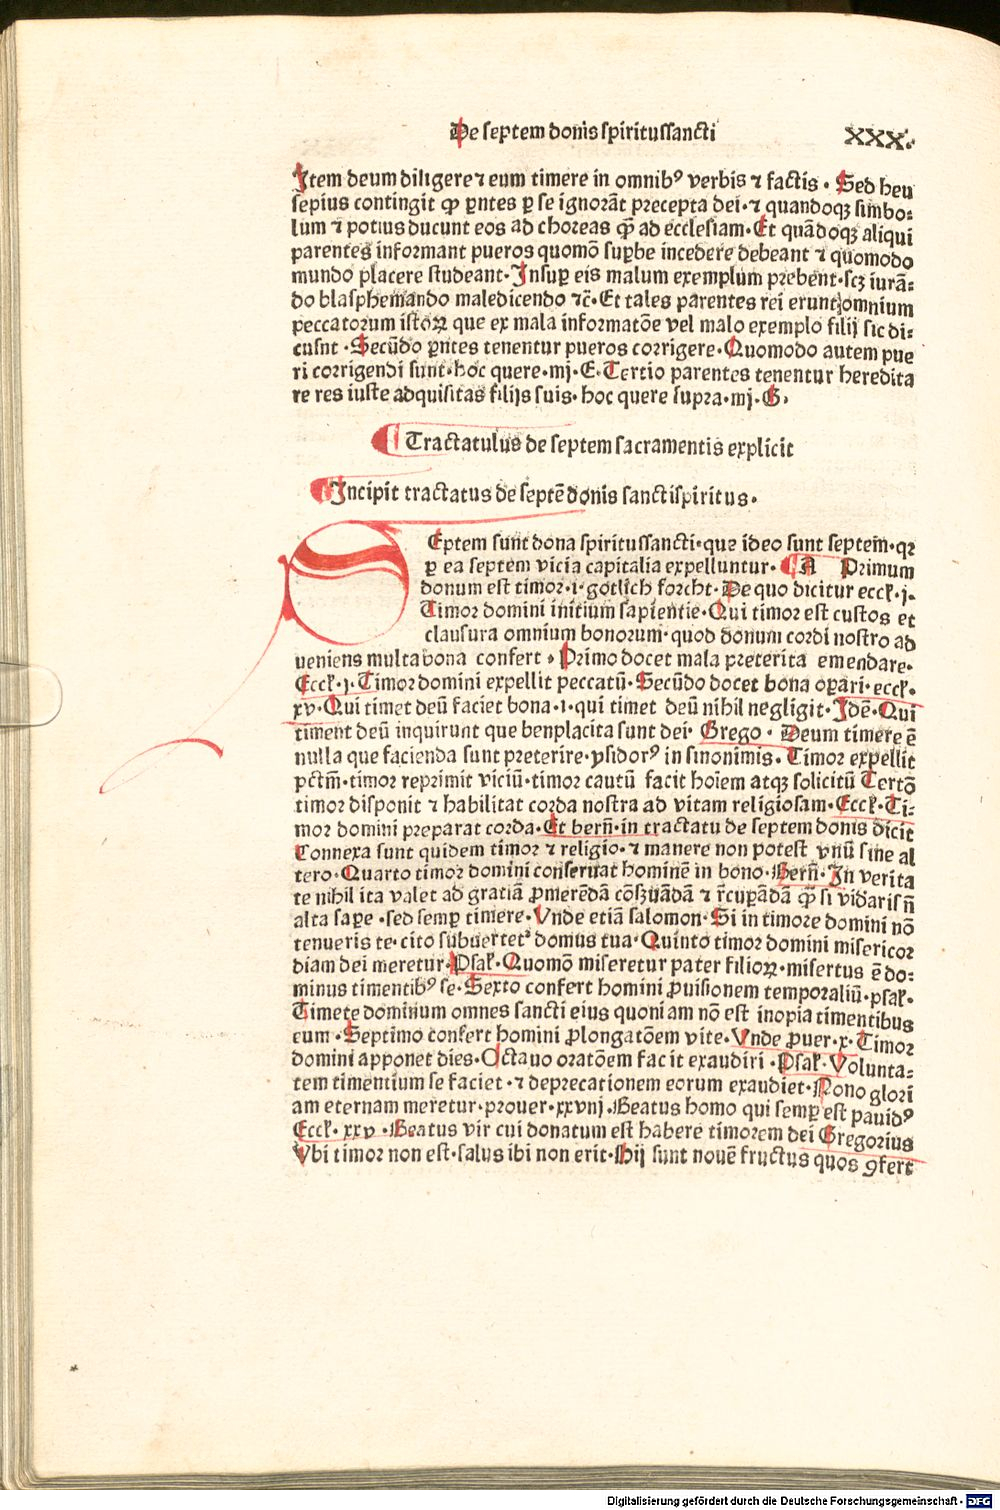 De septem donis spiritussancti
XXX.
Item deum diligere ⁊ eum timere in omnibꝰ verbis ⁊ factis · Sed heu
sepius contingit ꝙ pñtes ꝑ se ignorāt precepta dei · ⁊ quandoqꝫ simbo⸗
lum ⁊ potius ducunt eos ad choreas ꝙ̄ ad ecclesiam · Et quādoqꝫ aliqui
parentes informant pueros quomō suꝑbe incedere debeant ⁊ quomodo
mundo placere studeant · Insuꝑ eis malum exemplum prebent · scꝫ iurā⸗
do blasphemando maledicendo ⁊c̄ · Et tales parentes rei erunt omnium
peccatorum istoꝝ que ex mala informatōe vel malo exemplo filij sic di⸗
cusnt · Secūdo pñtes tenentur pueros corrigere · Quomodo autem pue
ri corrigendi sunt · hoc quere · mj · E · Tertio parentes tenentur heredita
re res iuste adquisitas filijs suis · hoc quere supra · mj · G ·
Tractatulus de septem sacramentis explicit
Incipit tractatus de septē donis sanctispiritus ·
SEptem sunt dona spiritussancti · que ideo sunt septem̄ · qꝛ
ꝑ ea septem vicia capitalia expelluntur · A Primum
donum est timor · i · gotlich forcht · De quo dicitur eccꝭ · j ·
Timor domini initium sapientie · Qui timor est custos et
clausura omnium bonorum · quod donum cordi nostro ad
ueniens multa bona confert · Primo docet mala preterita emendare ·
Eccꝭ · j · Timor domini expellit peccatū · Secūdo docet bona oꝑari · eccꝭ ·
xv · Qui timet deū faciet bona · i · qui timet deū nihil negligit · Idē · Qui
timent deū inquirunt que benplacita sunt dei · Grego · Deum timere ē
nulla que facienda sunt preterire · ysidorꝰ in sinonimis · Timor expellit
pctm̄ · timor reprimit viciū · timor cautū facit hoīem atqꝫ solicitū Tertō
timor disponit ⁊ habilitat corda nostra ad vitam religiosam · Eccꝭ · Ti⸗
mor domini preparat corda · Et berñ · in tractatu de septem donis dicit
Connexa sunt quidem timor ⁊ religio · ⁊ manere non potest vnū sine al
tero · Quarto timor domini conseruat hominē in bono · Berñ · In verita
te nihil ita valet ad gratiā ꝓmerēdā cōsꝫuādā ⁊ r̄cuꝑādā ꝙ̄ si vidaris ñ
alta saꝑe · sed semꝑ timere · Vnde etiā salomon · Si in timore domini nō
tenueris te · cito subuertet᷑ domus tua · Quinto timor domini misericor
diam dei meretur · Psaꝉ · Quomō miseretur pater filioꝝ · misertus ē do⸗
minus timentibꝰ se · Sexto confert homini ꝓuisionem temporaliū · psaꝉ ·
Timete dominum omnes sancti eius quoniam nō est inopia timentibus
eum · Septimo confert homini ꝓlongatōem vite · Vnde ꝓuer · x · Timor
domini apponet dies · Octauo oratōem facit exaudiri · Psaꝉ · Volunta⸗
tem timentium se faciet · ⁊ deprecationem eorum exaudiet · Nono glori
am eternam meretur · prouer · xxvnj · Beatus homo qui semꝑ est pauidꝰ
Eccꝭ · xxv · Beatus vir cui donatum est habere timorem dei Gregorius
Vbi timor non est · salus ibi non erit · Hij sunt nouē fructus quos ꝯfert
Digitalisierung gefördert durch die Deutsche Forschungsgemeinschaft - DFG